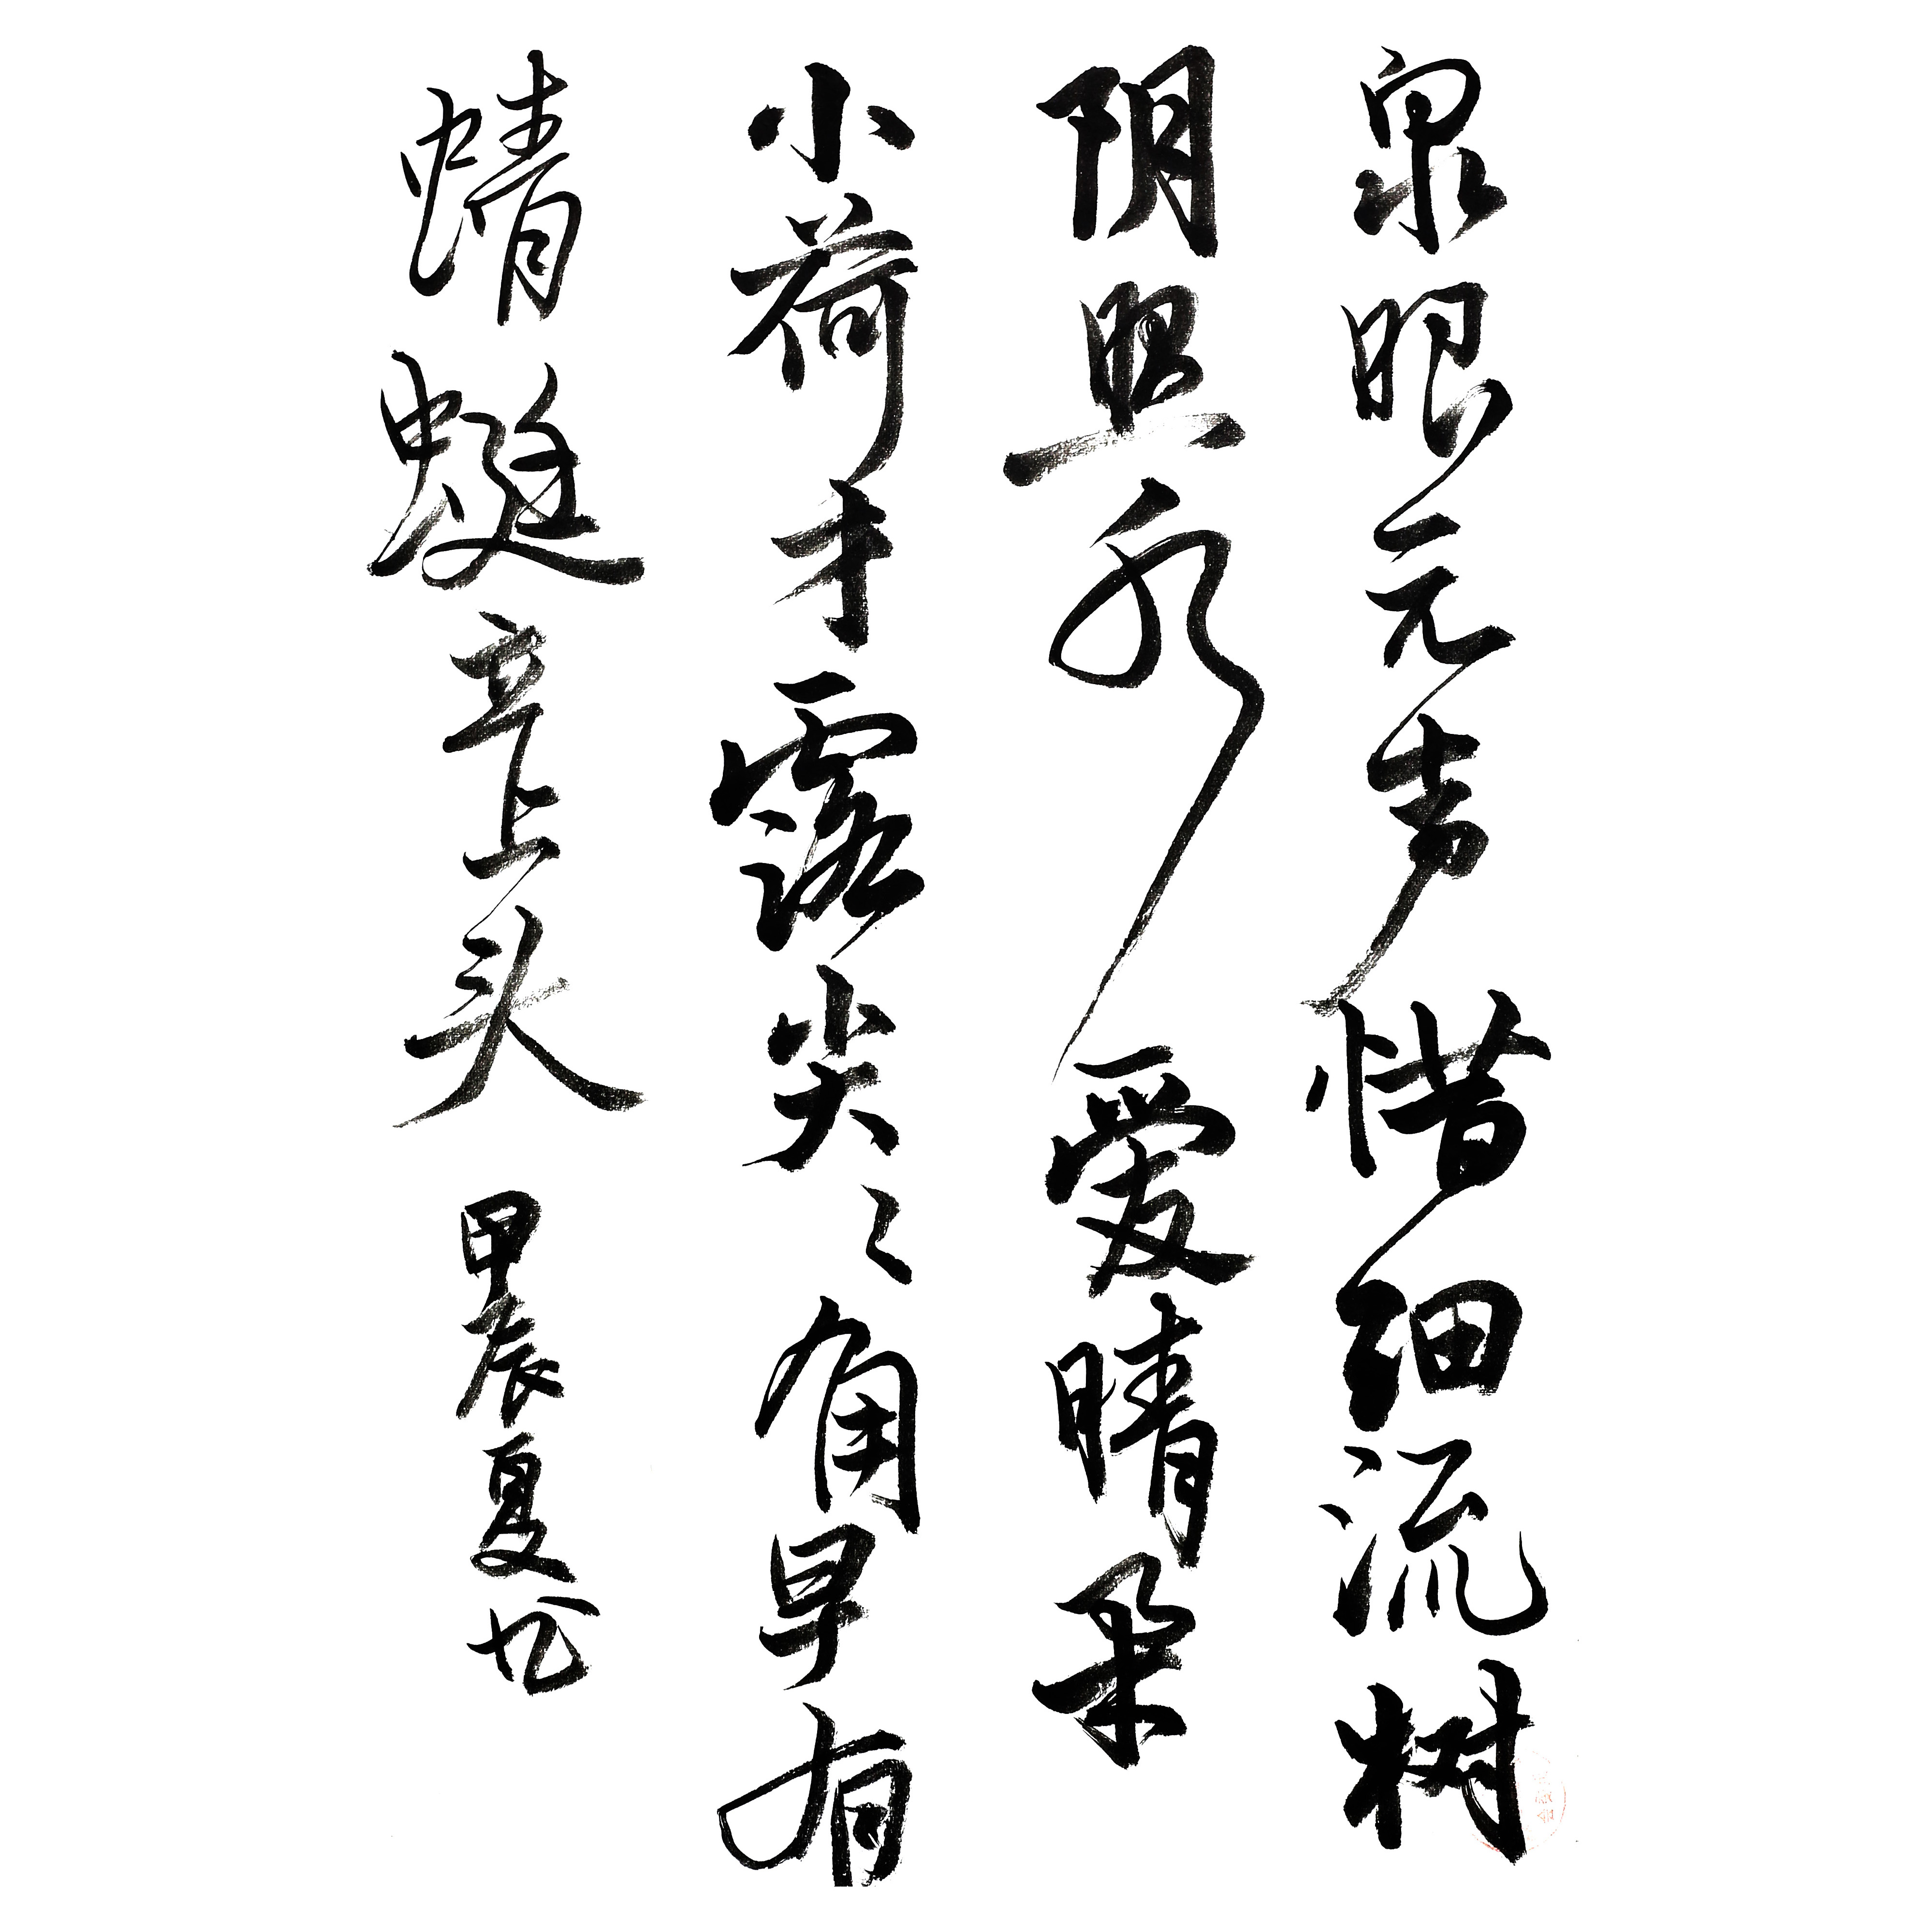 泉眼无声惜细流树
阴照水爱晴柔
小荷才露尖々角早有
蜻蜓立上头 甲辰夏